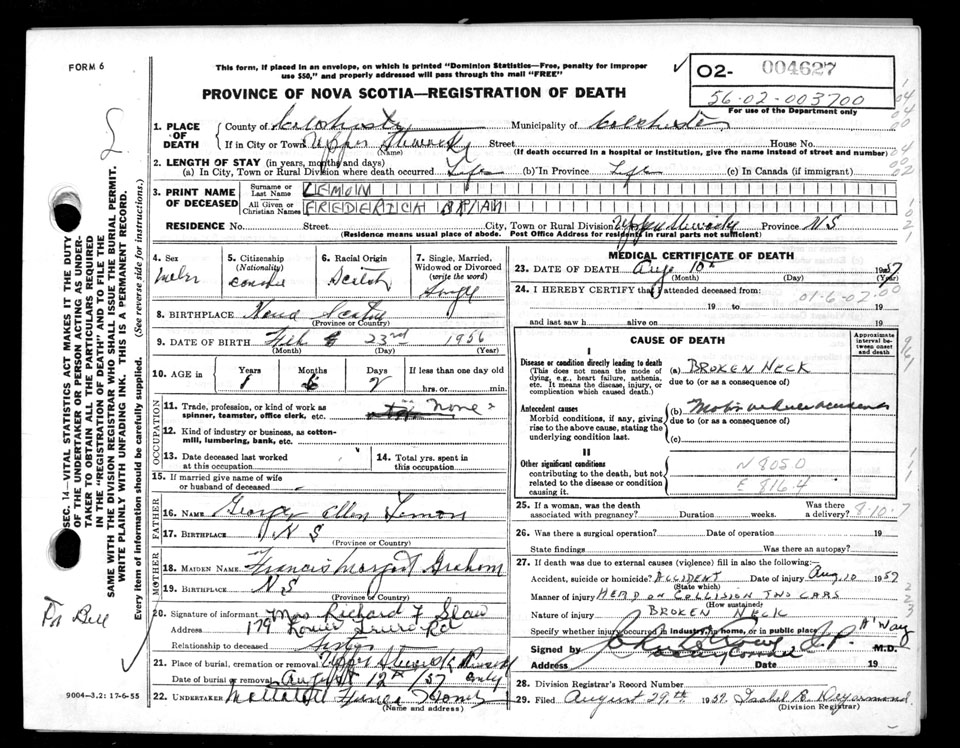 FORM 6
This form, if placed in an envelope, on which is printed "Dominion Statistics—Free, penalty for improper
use $50," and properly addressed will pass through the mail "FREE"
02- 004627
56-02-003700
For use of the Department only
PROVINCE OF NOVA SCOTIA—REGISTRATION OF DEATH
1. PLACE OF DEATH
County of Colchester Municipality of Colchester
If in City or Town Upper Stewiacke Street House No.
(Name) (If death occurred in a hospital or institution, give the name instead of street and number)
2. LENGTH OF STAY (in years, months and days)
(a) In City, Town or Rural Division where death occurred Life (b) In Province Life (c) In Canada (if immigrant)
3. PRINT NAME OF DECEASED
Surname or Last Name LEMON
All Given or Christian Names FREDERICK BRIAN
RESIDENCE No. Street City, Town or Rural Division Upper Stewiacke Province NS
(Residence means usual place of abode. Post Office Address for residents in rural parts not sufficient)
4. Sex
5. Citizenship (Nationality)
6. Racial Origin Scotch
7. Single, Married, Widowed or Divorced (write the word) Single
8. BIRTHPLACE Nova Scotia
(Province or Country)
9. DATE OF BIRTH Feb 23rd 1956
(Month) (Day) (Year)
10. AGE in Years Months Days If less than one day old
1 6 2 hrs. or min.
OCCUPATION
11. Trade, profession, or kind of work as spinner, teamster, office clerk, etc. None
12. Kind of industry or business, as cotton-mill, lumbering, bank, etc.
13. Date deceased last worked at this occupation
14. Total yrs. spent in this occupation
15. If married give name of wife or husband of deceased
FATHER
16. NAME George Allen Lemon
17. BIRTHPLACE NS
(Province or Country)
MOTHER
18. MAIDEN NAME Francis Margaret Graham
19. BIRTHPLACE NS
(Province or Country)
20. Signature of informant Mrs Richard F
Address 179
Relationship to deceased
21. Place of burial, cremation or removal Upper Stewiacke
Date of burial or removal August 12th /57
22. UNDERTAKER Home
(Name and address)
MEDICAL CERTIFICATE OF DEATH
23. DATE OF DEATH Aug 10th 1957
(Month) (Day) (Year)
24. I HEREBY CERTIFY that I attended deceased from:
01-6-02-00
19 to 19
and last saw h alive on 19
CAUSE OF DEATH
Approximate interval between onset and death
I
Disease or condition directly leading to death
(This does not mean the mode of dying, e.g., heart failure, asthenia, etc. It means the disease, injury, or complication which caused death.)
(a) BROKEN NECK
due to (or as a consequence of)
Antecedent causes
Morbid conditions, if any, giving rise to the above cause, stating the underlying condition last.
(b) Motor vehicle accident
due to (or as a consequence of)
(c)
II
Other significant conditions
contributing to the death, but not related to the disease or condition causing it.
N 8050
E 816.4
25. If a woman, was the death associated with pregnancy? Duration weeks. Was there a delivery?
8-10-7
26. Was there a surgical operation? Date of operation 19
State findings Was there an autopsy?
27. If death was due to external causes (violence) fill in also the following:
Accident, suicide or homicide? ACCIDENT Date of injury Aug 10 1957
(State which)
Manner of injury HEAD ON COLLISION TWO CARS
(How sustained)
Nature of injury BROKEN NECK
Specify whether injury occurred in industry, in home, or in public place H'Way
Signed by M.D.
Address Date 19
28. Division Registrar's Record Number
29. Filed August 29th 1957. Isabel B. Deyarmond
(Division Registrar)
SEC. 14—VITAL STATISTICS ACT MAKES IT THE DUTY
OF THE UNDERTAKER OR PERSON ACTING AS UNDER-
TAKER TO OBTAIN ALL THE PARTICULARS REQUIRED
IN THE "REGISTRATION OF DEATH" AND TO FILE THE
SAME WITH THE DIVISION REGISTRAR WHO SHALL ISSUE THE BURIAL PERMIT.
WRITE PLAINLY WITH UNFADING INK. THIS IS A PERMANENT RECORD.
Every item of information should be carefully supplied. (See reverse side for instructions.)
9004-3,2: 17-6-55